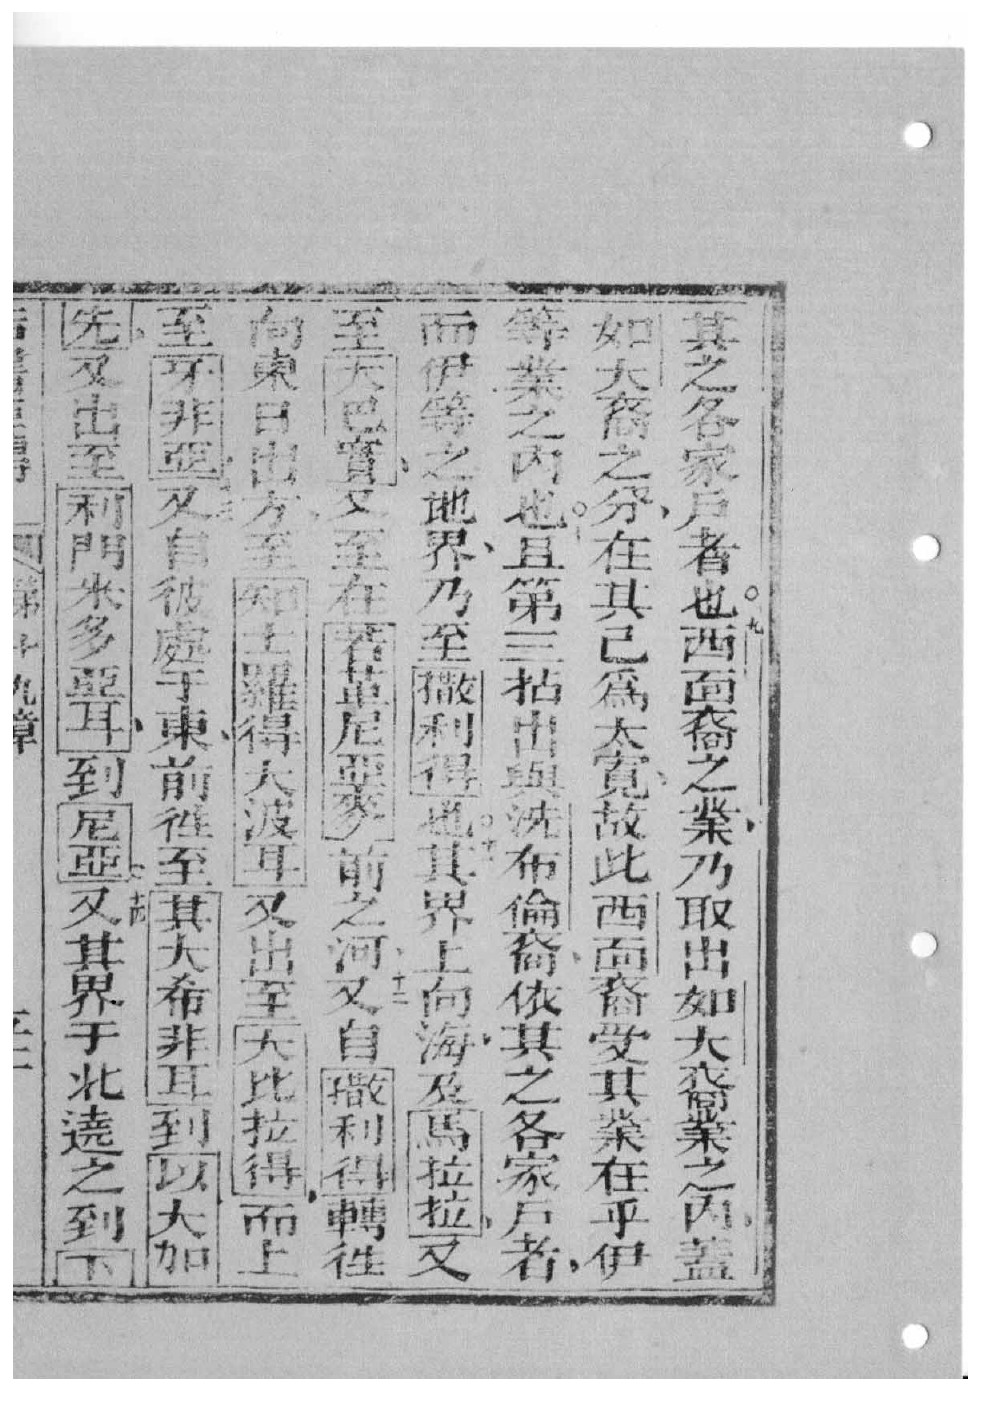 其之各家戶者也○九西面裔之業、乃取出如大裔業之內、蓋
如大裔之分、在其已爲太寛、故此西面裔受其業在乎伊
等業之內也○十且第三拈出與洗布倫裔、依其之各家戶者、
而伊等之地界、乃至撒利得也○十一其界上向海、及馬拉拉、又
至大巴實、又至在若革尼亞麥前之河、十二又自撒利得轉徃
向東日出方、至知士羅得大波耳又出至大比拉得、而上
至牙非亞、十三又自彼處于東、前徃至其大希非耳到以大加
先、又出至利門米多亞耳、到尼亞○十四又其界于北遶之到下
第十九章